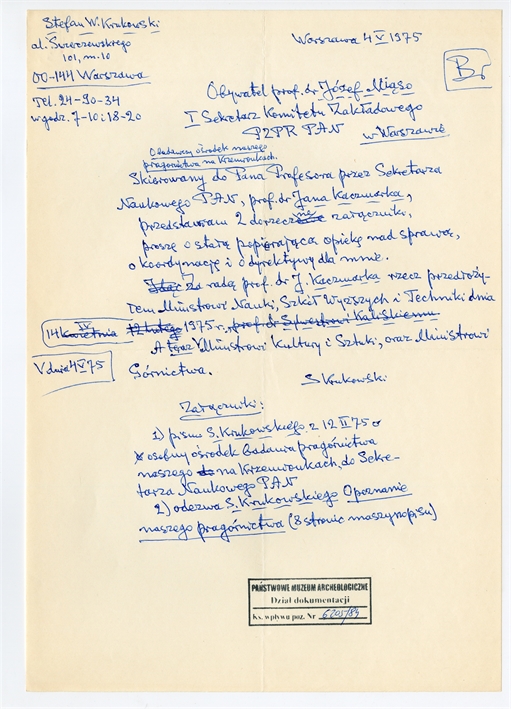 Stefan W. Krukowski
al. Świerczewskiego
101, m. 10
00-144 Warszawa
Tel. 24-90-34
w godz. 7-10 i 18-20
Warszawa 4 V 1975
Br
Obywatel prof. dr Józef Miąso
I Sekretarz Komitetu Zakładowego
PZPR PAN
w Warszawie
O badawczy ośrodek naszego
pragórnictwa na Krzemionkach.
Skierowany do Pana Profesora przez Sekretarza
Naukowego PAN, prof. dr Jana Kaczmarka,
przedstawiam 2 dorzeczne załączniki,
proszę o stałą popierającą opiekę nad sprawą,
o koordynację i o dyrektywy dla mnie.
Idąc Za radą prof. dr J. Kaczmarka rzecz przedłoży-
łem Ministrowi Nauki, Szkół Wyższych i Techniki dnia
14 kwietnia IV
12 lutego 1975 r, prof. dr Sylwestrowi Kaliskiemu
A teraz V Ministrowi Kultury i Sztuki, oraz Ministrowi
V dnia 4 V 75
Górnictwa.
S Krukowski
Załączniki:
1) pismo S. Krukowskiego z 12 II 75 o
osobny ośrodek badania pragórnictwa
naszego do na Krzemionkach, do Sekre-
tarza Naukowego PAN
2) odezwa S. Krukowskiego O poznanie
naszego pragórnictwa (8 stronic maszynopisu)
PAŃSTWOWE MUZEUM ARCHEOLOGICZNE
Dział dokumentacji
Ks. wpływu poz. Nr 6205/84